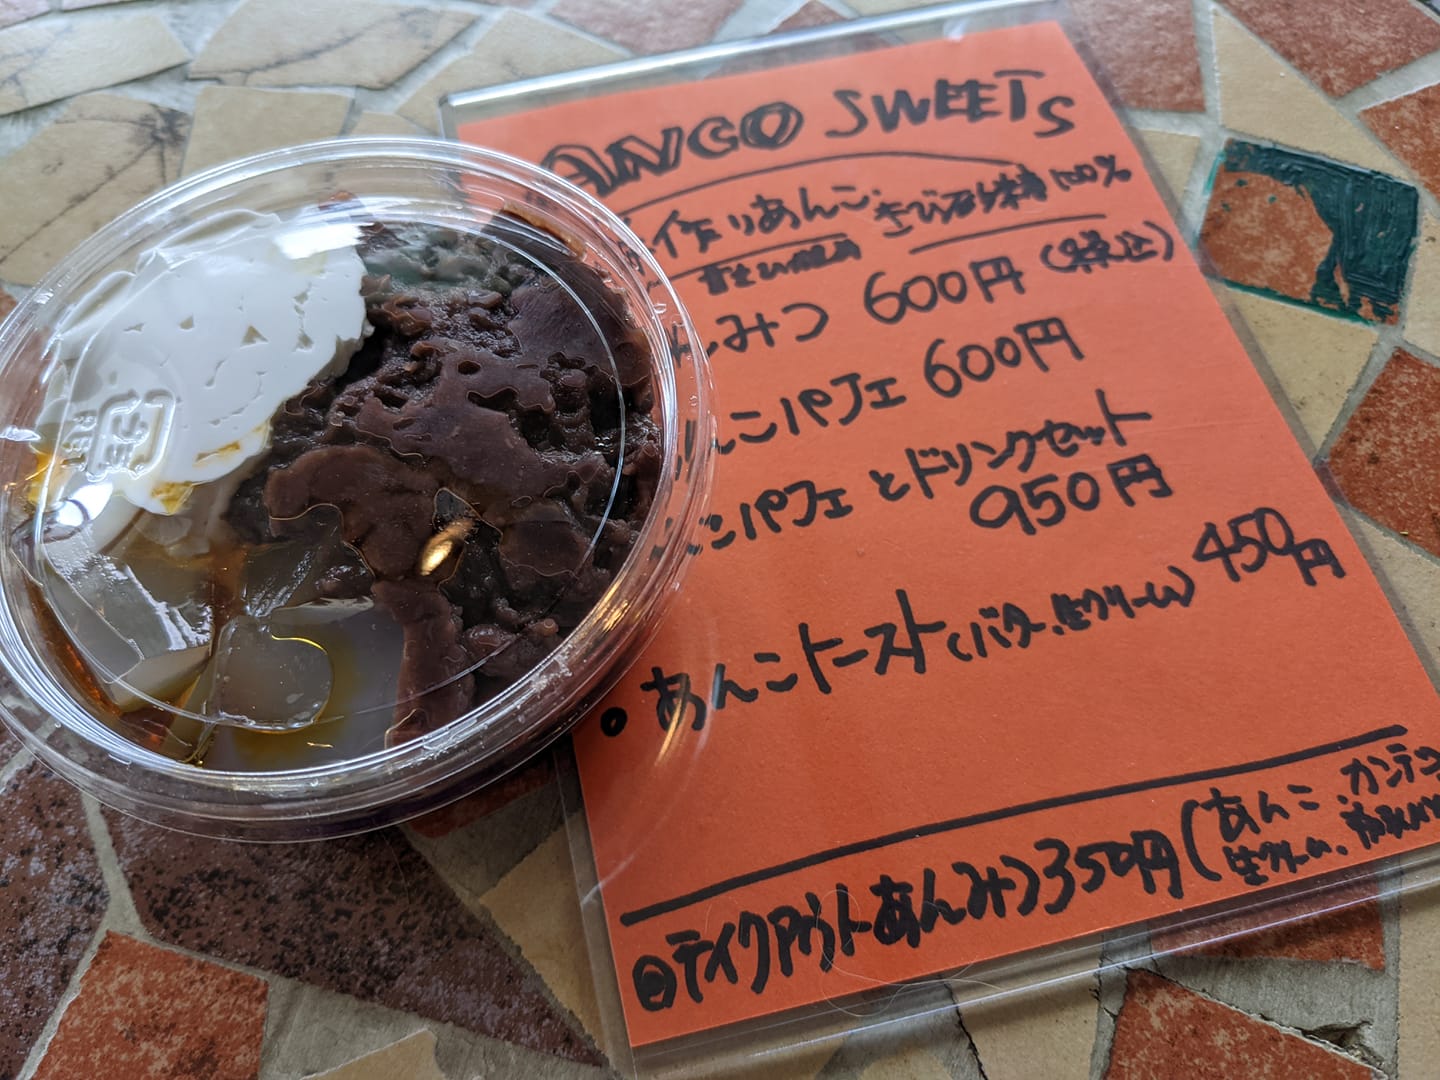 ANCO SWEETS
作りあんこ きび砂糖 100%
んみつ 600円 (税込)
んこパフェ 600円
こパフェとドリンクセット
950円
• あんこトースト(バター、生クリーム) 450円
テイクアウトあんみつ 350円 (あんこ、カンテン
生クリーム、